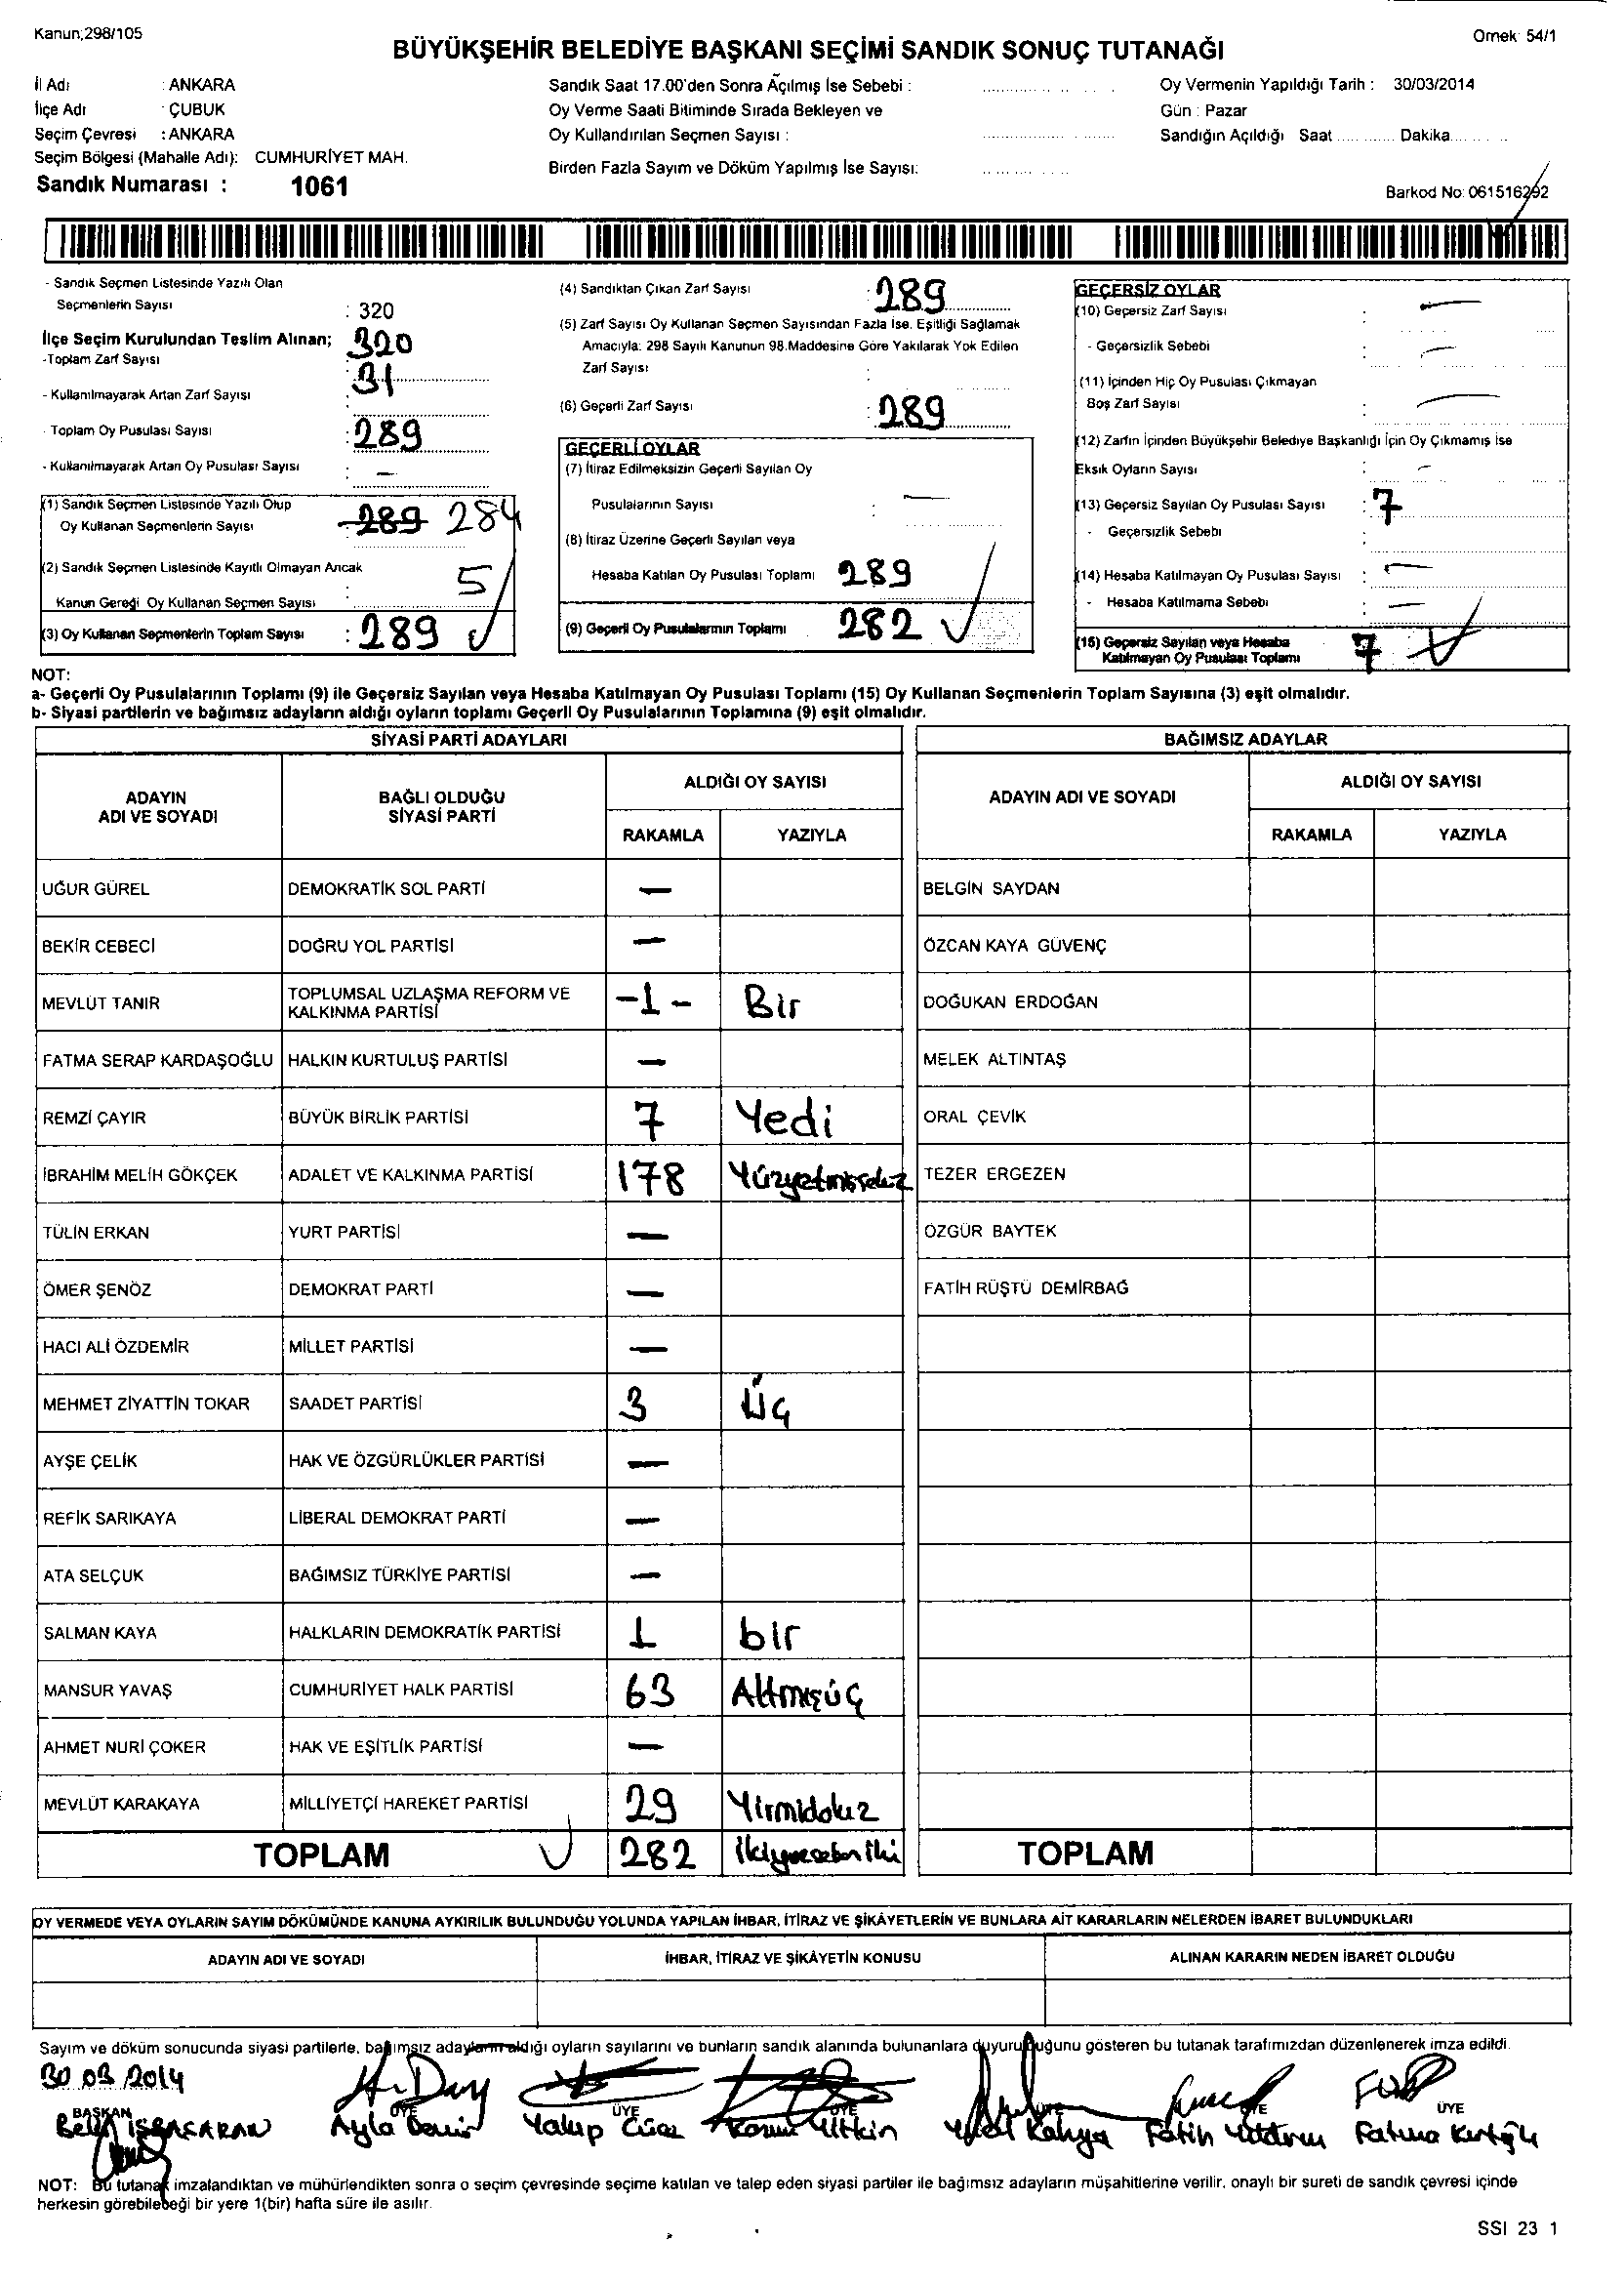 Kanun;298/105
Örnek 54/1
BÜYÜKŞEHİR BELEDİYE BAŞKANI SEÇİMİ SANDIK SONUÇ TUTANAĞI
İl Adı : ANKARA
İlçe Adı : ÇUBUK
Seçim Çevresi : ANKARA
Seçim Bölgesi (Mahalle Adı): CUMHURİYET MAH.
Sandık Numarası : 1061
Sandık Saat 17.00'den Sonra Açılmış İse Sebebi :
Oy Verme Saati Bitiminde Sırada Bekleyen ve
Oy Kullandırılan Seçmen Sayısı :
Birden Fazla Sayım ve Döküm Yapılmış İse Sayısı:
Oy Vermenin Yapıldığı Tarih : 30/03/2014
Gün : Pazar
Sandığın Açıldığı Saat ............ Dakika............
Barkod No: 061516292
- Sandık Seçmen Listesinde Yazılı Olan
Seçmenlerin Sayısı : 320
İlçe Seçim Kurulundan Teslim Alınan;
-Toplam Zarf Sayısı : 320
- Kullanılmayarak Artan Zarf Sayısı : 31
- Toplam Oy Pusulası Sayısı : 289
- Kullanılmayarak Artan Oy Pusulası Sayısı : —
(1) Sandık Seçmen Listesinde Yazılı Olup
Oy Kullanan Seçmenlerin Sayısı : 289 284
(2) Sandık Seçmen Listesinde Kayıtlı Olmayan Ancak
Kanun Gereği Oy Kullanan Seçmen Sayısı : 5
(3) Oy Kullanan Seçmenlerin Toplam Sayısı : 289
(4) Sandıktan Çıkan Zarf Sayısı : 289
(5) Zarf Sayısı Oy Kullanan Seçmen Sayısından Fazla İse. Eşitliği Sağlamak
Amacıyla: 298 Sayılı Kanunun 98.Maddesine Göre Yakılarak Yok Edilen
Zarf Sayısı :
(6) Geçerli Zarf Sayısı : 289
GEÇERLİ OYLAR
(7) İtiraz Edilmeksizin Geçerli Sayılan Oy
Pusulalarının Sayısı : —
(8) İtiraz Üzerine Geçerli Sayılan veya
Hesaba Katılan Oy Pusulası Toplamı 289
(9) Geçerli Oy Pusulalarının Toplamı 282
GEÇERSİZ OYLAR
(10) Geçersiz Zarf Sayısı : —
- Geçersizlik Sebebi : —
(11) İçinden Hiç Oy Pusulası Çıkmayan
Boş Zarf Sayısı : —
(12) Zarfın İçinden Büyükşehir Belediye Başkanlığı İçin Oy Çıkmamış İse
Eksik Oyların Sayısı : —
(13) Geçersiz Sayılan Oy Pusulası Sayısı : 7
- Geçersizlik Sebebi :
(14) Hesaba Katılmayan Oy Pusulası Sayısı : —
- Hesaba Katılmama Sebebi : —
(15) Geçersiz Sayılan veya Hesaba
Katılmayan Oy Pusulası Toplamı 7
NOT:
a- Geçerli Oy Pusulalarının Toplamı (9) ile Geçersiz Sayılan veya Hesaba Katılmayan Oy Pusulası Toplamı (15) Oy Kullanan Seçmenlerin Toplam Sayısına (3) eşit olmalıdır.
b- Siyasi partilerin ve bağımsız adayların aldığı oyların toplamı Geçerli Oy Pusulalarının Toplamına (9) eşit olmalıdır.
SİYASİ PARTİ ADAYLARI
ADAYIN ADI VE SOYADI BAĞLI OLDUĞU SİYASİ PARTİ ALDIĞI OY SAYISI
RAKAMLA YAZIYLA
UĞUR GÜREL DEMOKRATİK SOL PARTİ —
BEKİR CEBECİ DOĞRU YOL PARTİSİ —
MEVLÜT TANIR TOPLUMSAL UZLAŞMA REFORM VE KALKINMA PARTİSİ -1- Bir
FATMA SERAP KARDAŞOĞLU HALKIN KURTULUŞ PARTİSİ —
REMZİ ÇAYIR BÜYÜK BİRLİK PARTİSİ 7 Yedi
İBRAHİM MELİH GÖKÇEK ADALET VE KALKINMA PARTİSİ 178 Yüzyetmişsekiz
TÜLİN ERKAN YURT PARTİSİ —
ÖMER ŞENÖZ DEMOKRAT PARTİ —
HACI ALİ ÖZDEMİR MİLLET PARTİSİ —
MEHMET ZİYATTİN TOKAR SAADET PARTİSİ 3 Üç
AYŞE ÇELİK HAK VE ÖZGÜRLÜKLER PARTİSİ —
REFİK SARIKAYA LİBERAL DEMOKRAT PARTİ —
ATA SELÇUK BAĞIMSIZ TÜRKİYE PARTİSİ —
SALMAN KAYA HALKLARIN DEMOKRATİK PARTİSİ 1 bir
MANSUR YAVAŞ CUMHURİYET HALK PARTİSİ 63 Altmışüç
AHMET NURİ ÇOKER HAK VE EŞİTLİK PARTİSİ —
MEVLÜT KARAKAYA MİLLİYETÇİ HAREKET PARTİSİ 29 Yirmidokuz
TOPLAM 282 İkiyüzseksen iki
BAĞIMSIZ ADAYLAR
ADAYIN ADI VE SOYADI ALDIĞI OY SAYISI
RAKAMLA YAZIYLA
BELGİN SAYDAN
ÖZCAN KAYA GÜVENÇ
DOĞUKAN ERDOĞAN
MELEK ALTINTAŞ
ORAL ÇEVİK
TEZER ERGEZEN
ÖZGÜR BAYTEK
FATİH RÜŞTÜ DEMİRBAĞ
TOPLAM
OY VERMEDE VEYA OYLARIN SAYIM DÖKÜMÜNDE KANUNA AYKIRILIK BULUNDUĞU YOLUNDA YAPILAN İHBAR, İTİRAZ VE ŞİKÂYETLERİN VE BUNLARA AİT KARARLARIN NELERDEN İBARET BULUNDUKLARI
ADAYIN ADI VE SOYADI İHBAR, İTİRAZ VE ŞİKÂYETİN KONUSU ALINAN KARARIN NEDEN İBARET OLDUĞU
Sayım ve döküm sonucunda siyasi partilerle, bağımsız adayların aldığı oyların sayılarını ve bunların sandık alanında bulunanlara duyurulduğunu gösteren bu tutanak tarafımızdan düzenlenerek imza edildi.
30.03.2014
BAŞKAN ÜYE ÜYE ÜYE ÜYE ÜYE ÜYE
Ayla Demir Yakup Fatih Yıldırım Fatma
NOT: Bu tutanak imzalandıktan ve mühürlendikten sonra o seçim çevresinde seçime katılan ve talep eden siyasi partiler ile bağımsız adayların müşahitlerine verilir, onaylı bir sureti de sandık çevresi içinde
herkesin görebileceği bir yere 1(bir) hafta süre ile asılır.
SSI 23 1